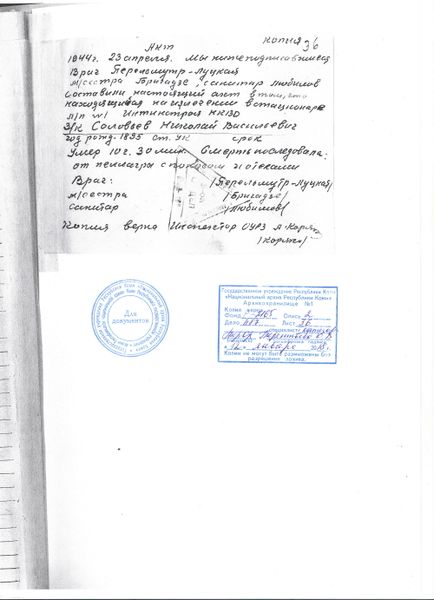 Копия 36
Акт
1944г. 23 апреля. Мы нижеподписавшиеся
Врач Перельмутр-Луцкая
м/сестра Бригадзе, санитар Любимов
составили настоящий акт в том, что
находящийся на излечении в стационаре
л/п №1 Интинстроя НКВД
З/К Соловьев Николай Васильевич
год рожд-1895 ст. УК срок
Умер 10 г. 30 мин. Смерть последовала:
от пеллагры с поносом и отеками
Врач: /Перельмутр-Луцкая/
м/сестра /Бригадзе/
Санитар /Любимов/
Копия верна Инспектор ОУРЗ
Для
документов
Государственное учреждение Республики Коми
«Национальный архив Республики Коми»
Архивохранилище №1
Копия верна
Фонд Опись 2
Дело Лист 36
"12" января
Копии не могут быть размножены без
разрешения архива.